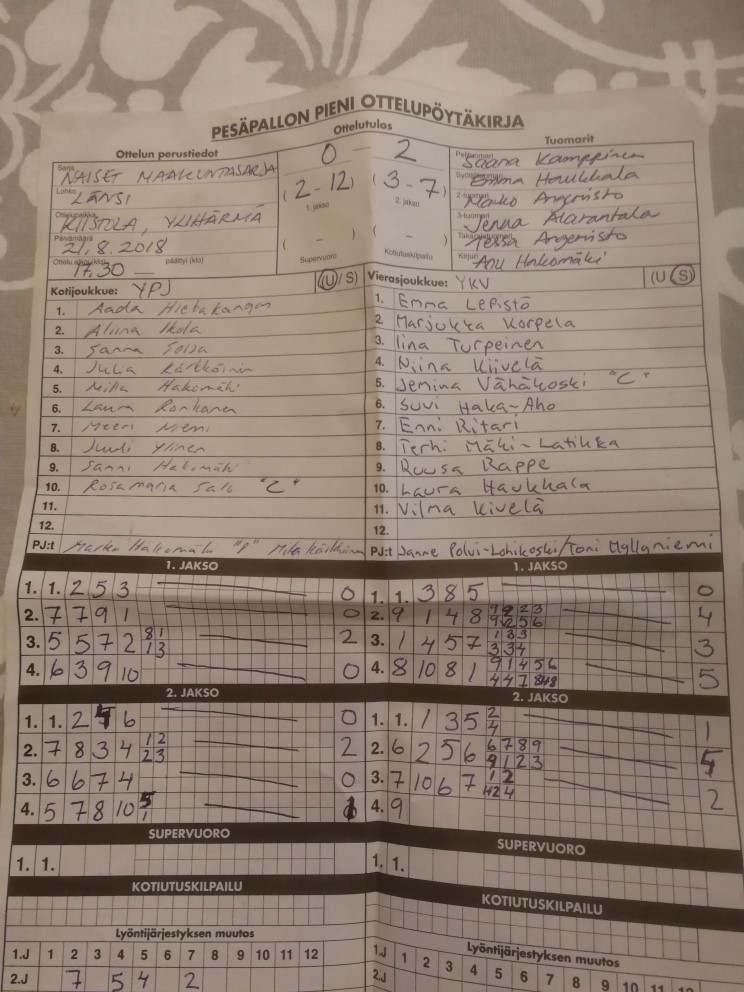 PESÄPALLON PIENI OTTELUPÖYTÄKIRJA
Ottelun perustiedot
Ottelutulos
Tuomarit
Sarja NAISET MAAKUNTASARJA
Lohko LÄNSI
Ottelupaikka KIISTOLA, YLIHÄRMÄ
Päivämäärä 21.8.2018
Ottelu alkoi (klo) 17.30 päättyi (klo)
0 - 2
(2-12) (3-7)
1. jakso 2. jakso
( - ) ( - )
Supervuoro Kotiutuskilpailu
Saana Kamppinen
Emma Haukkala
Marko Angeristo
2-tuomari
3-tuomari Jenna Alarantala
Tessa Angeristo
Kirjuri Anu Hakomäki
Kotijoukkue: YPJ (U/S)
1. Aada Hietakangas
2. Aliina Ikola
3. Sanna
4. Julia Kärkkäinen
5. Milla Hakomäki
6. Laura Ronkanen
7. Meeri Niemi
8. Juuli Ylinen
9. Sanni Hakomäki
10. Rosamaria Salo "C"
11.
12.
PJ:t Marko Hakomäki "P" Mika Kärkkäinen
Vierasjoukkue: YKV (U/S)
1. Emma Lepistö
2. Marjukka Korpela
3. Iina Turpeinen
4. Niina Kiivelä
5. Jemina Vähäkoski "C"
6. Suvi Haka-Aho
7. Enni Ritari
8. Terhi Mäki-Latikka
9. Ruusa Rappe
10. Laura Haukkala
11. Vilma Kivelä
12.
PJ:t Janne Polvi-Lohikoski/Toni Myllyniemi
1. JAKSO
1. 1. 2 5 3 0
2. 7 7 9 1 0
3. 5 5 7 2 8 1 1 3 2
4. 6 3 9 10 0
2. JAKSO
1. 1. 2 6 0
2. 7 8 3 4 1 2 2 3 2
3. 6 6 7 4 0
4. 5 7 8 10 5 1 1
SUPERVUORO
1. 1.
KOTIUTUSKILPAILU
Lyöntijärjestyksen muutos
1.J 1 2 3 4 5 6 7 8 9 10 11 12
2.J 7 5 4 2
1. JAKSO
1. 1. 3 8 5 0
2. 9 1 4 8 4
3. 1 4 5 7 1 3 3 3 3 4 3
4. 8 10 8 1 9 1 4 5 6 5
2. JAKSO
1. 1. 1 3 5 2 4 1
2. 6 2 5 6 6 7 8 9 9 1 2 3
3. 7 10 6 7 1 2 2
4. 9
SUPERVUORO
1. 1.
KOTIUTUSKILPAILU
Lyöntijärjestyksen muutos
1.J 1 2 3 4 5 6 7 8 9 10 11 12
2.J